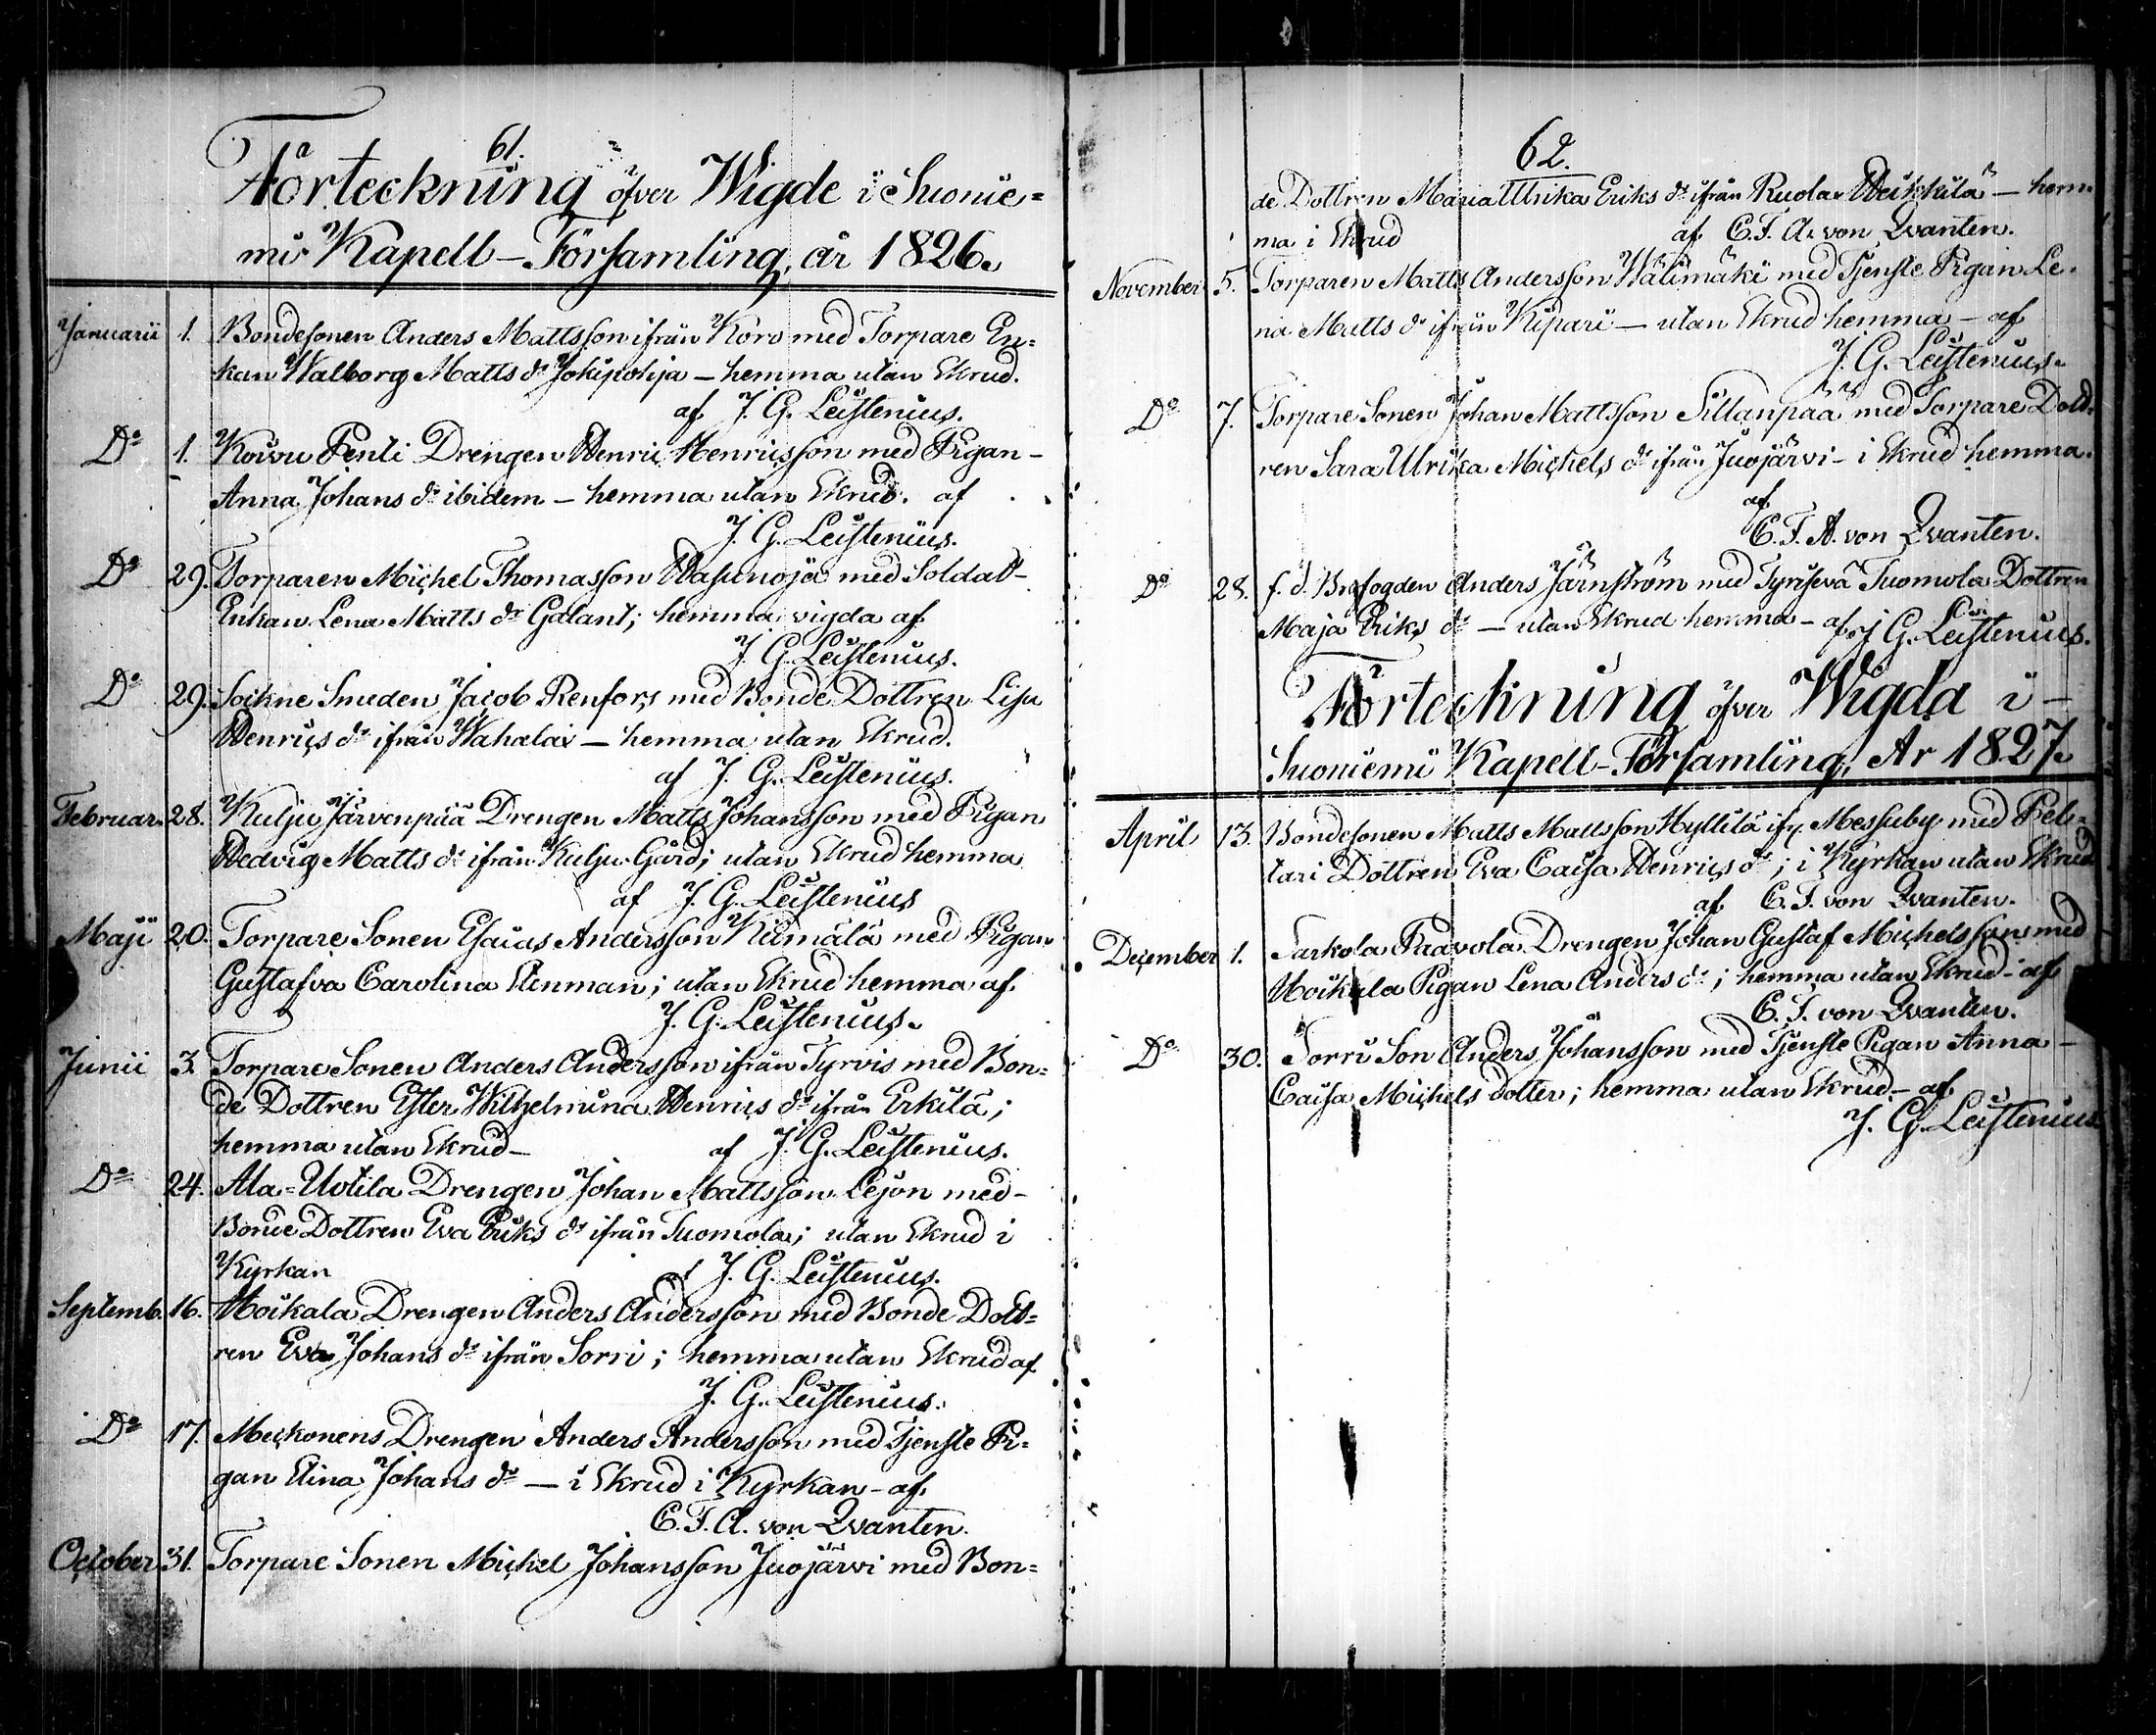 61.
Förteckning öfver Wigde i Suonie=
mi Kapell-Församling, år 1826.
Januarii 1. Bondesonen Anders Mattsson ifrån Koro med Torpare En=
kan Walborg Matts dr Jokipohja – hemma utan Skrud.
af J. G. Leistenius.
Do 1. Kovou Penti Drengen Henric Henricsson med Pigan –
Anna Johans dr ibidem – hemma utan Skrud. af
J. G. Leistenius.
Do 29. Torparen Michel Thomasson Hasunoja med Soldat-
Enkan Lena Matts dr Galant; hemma vigda af
J. G. Leistenius.
Do 29. Sockne Smeden Jacob Renfors med Bonde Dottren Lisa
Henrics dr ifrån Wahala – hemma utan Skrud.
af J. G. Leistenius.
Februar. 28. Kulju Järvenpää Drengen Matts Johansson med Pigan
Hedvig Matts dr ifrån Kulju Gård; utan Skrud hemma
af J. G. Leistenius
Maji 20. Torpare Sonen Esaias Andersson Kiimälä med Pigan
Gustafva Carolina Ekman; utan Skrud hemma af
J. G. Leistenius.
Junii 3. Torpare Sonen Anders Andersson ifrån Tyrvis med Bon=
de Dottren Ester Wilhelmina Henrics dr ifrån Erkilä;
hemma utan Skrud – af J. G. Leistenius.
Do 24. Ala-Uotila Drengen Johan Mattsson Lejon med –
Bonde Dottren Eva Eriks dr ifrån Tuomola; utan Skrud i
Kyrkan af J. G. Leistenius.
Septemb. 16. Moikala Drengen Anders Andersson med Bonde Dott=
ren Eva Johans dr ifrån Sorri; hemma utan Skrud af
J. G. Leistenius.
Do 17. Meckonens Drengen Anders Andersson med Tjenste Pi=
gan Elina Johans dr – i Skrud i Kyrkan – af
C. F. A. von Qvanten.
October 31. Torpare Sonen Michel Johansson Juojärvi med Bon=
62.
de Dottren Maria Ulrika Eriks dr ifrån Ruola Heikkilä – hem=
ma i Skrud af C. F. A. von Qvanten.
November 5. Torparen Matts Andersson Wälimäki med Tjenste Pigan Le=
na Matts dr ifrån Kipari – utan Skrud hemma – af
J. G. Leistenius.
Do 7. Torpare Sonen Johan Mattsson Sillanpää med Torpare Dott=
ren Sara Ulrika Michels dr ifrån Juojärvi – i Skrud hemma.
af
C. F. A. von Qvanten.
Do 28. f. d. Brofogden Anders Järnström med Tyrisevä Tuomola Dottren
Maja Eriks dr – utan Skrud hemma – af J G. Leistenius.
Förteckning öfver Wigda i –
Suoniemi Kapell-Församling, År 1827.
April 13. Bondesonen Matts Mattsson Hyllilä ifr. Messuby med Pele=
tari Dottren Eva Caisa Henrics dr; i Kyrkan utan Skrud
af C. F. von Qvanten.
December 1. Sarkola Paavola Drengen Johan Gustaf Michelsson med
Moikala Pigan Lena Anders dr; hemma utan Skrud – af
C. F. von Qvanten.
Do 30. Sorri Son Anders Johansson med Tjenste Pigan Anna –
Caisa Michels dotter; hemma utan Skrud – af
J. G. Leistenius